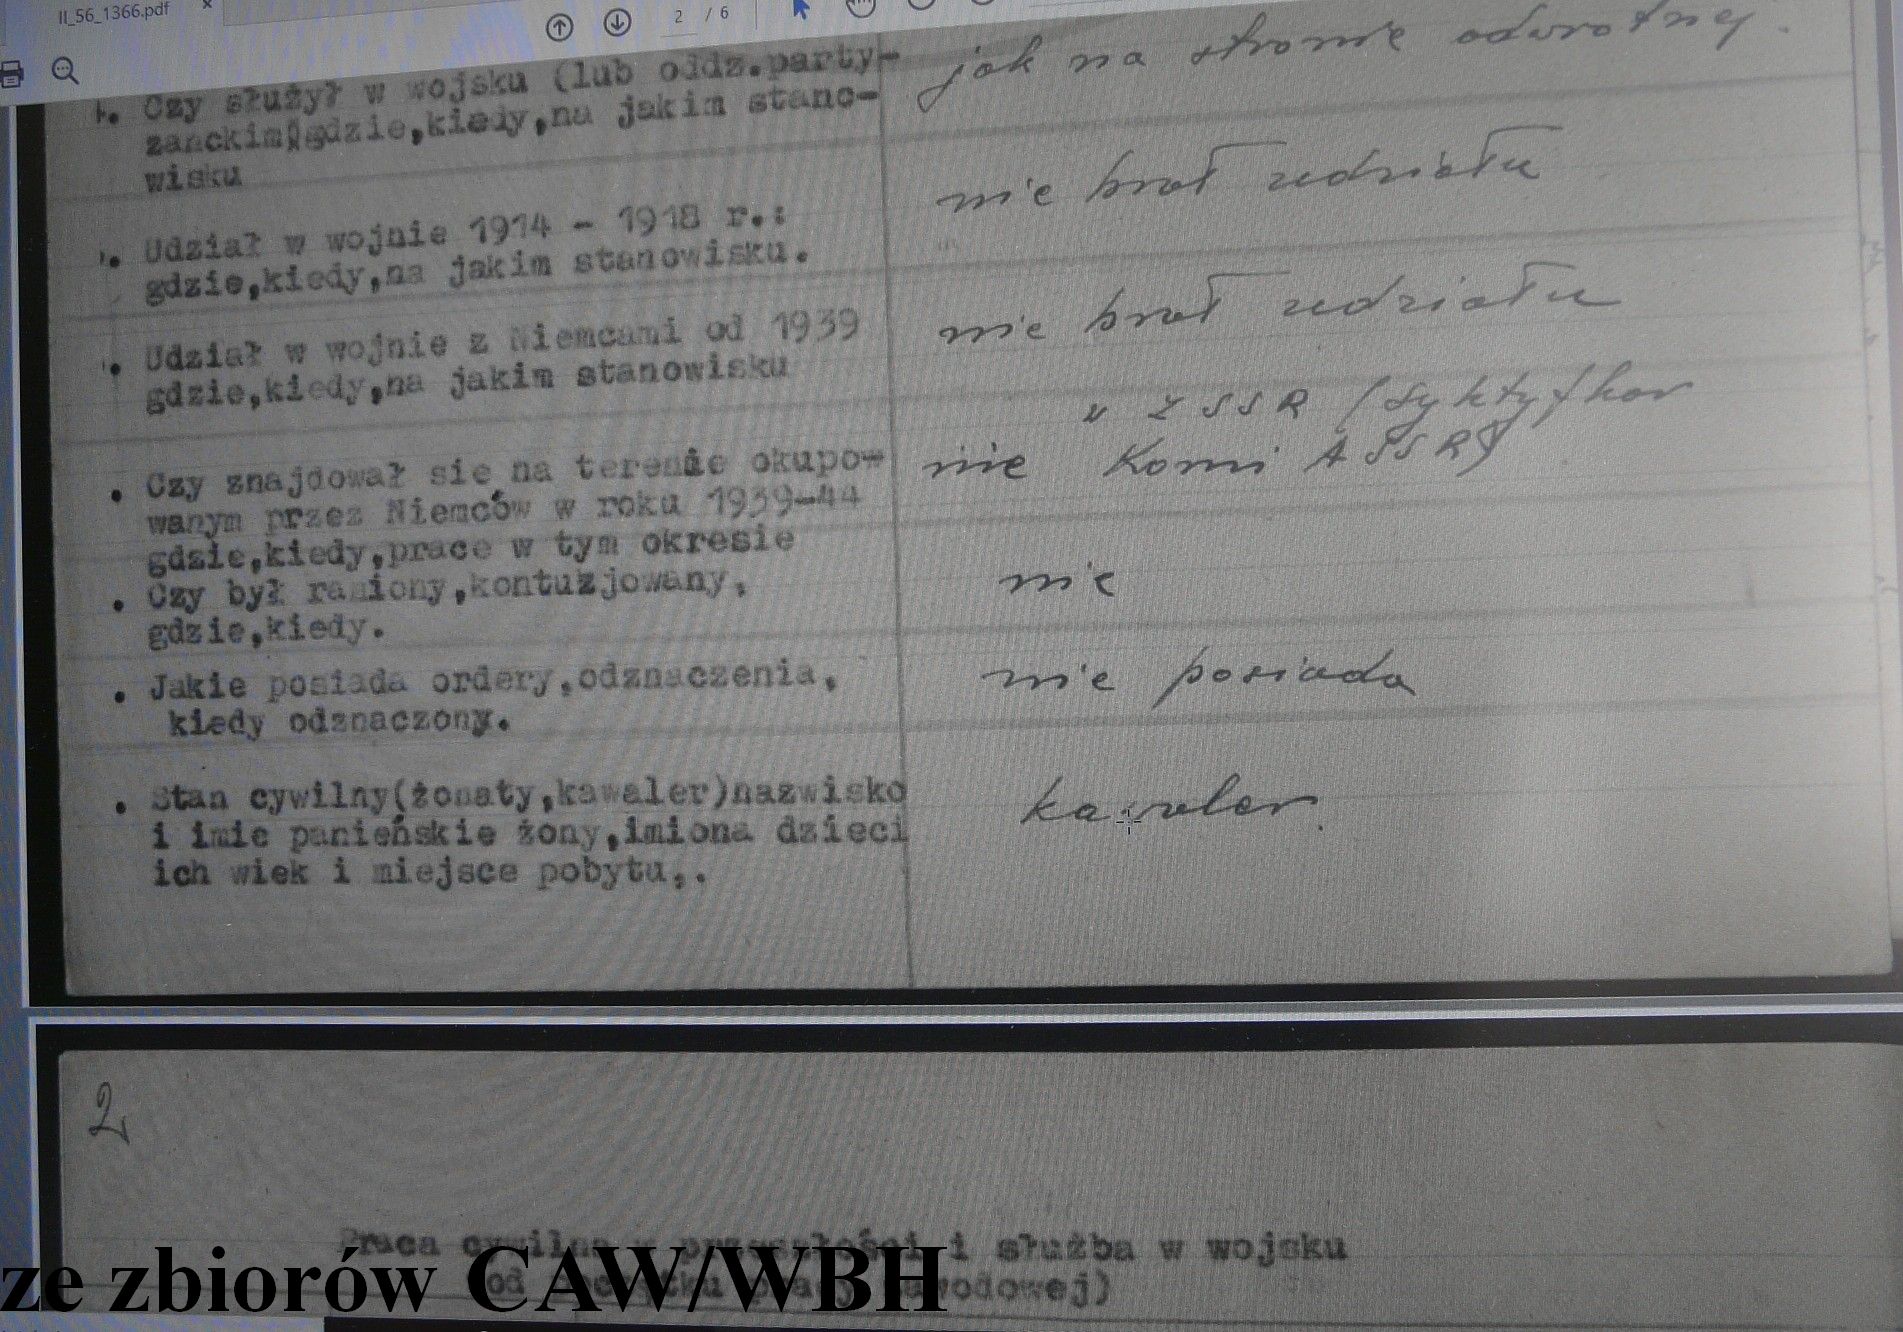 II_56_1366.pdf
2 / 6
Czy służył w wojsku (lub oddz.party-
zanckim)gdzie,kiedy,na jakim stano-
wisku
jak na stronie odwrotnej.
Udział w wojnie 1914 - 1918 r.:
gdzie,kiedy,na jakim stanowisku.
nie brał udziału
Udział w wojnie z Niemcami od 1939
gdzie,kiedy,na jakim stanowisku
nie brał udziału
Czy znajdował sie na terenie okupo-
wanym przez Niemców w roku 1939-44
gdzie,kiedy,prace w tym okresie
w ZSSR (Syktyfkar
nie Komi ASSR)
Czy był raniony,kontuzjowany,
gdzie,kiedy.
nie
Jakie posiada ordery,odznaczenia,
kiedy odznaczony.
nie posiada
Stan cywilny(żonaty,kawaler)nazwisko
i imie panieńskie żony,imiona dzieci
ich wiek i miejsce pobytu,.
kawaler.
2
Praca cywilna w przeszłości i służba w wojsku
(od początku pracy zawodowej)
ze zbiorów CAW/WBH